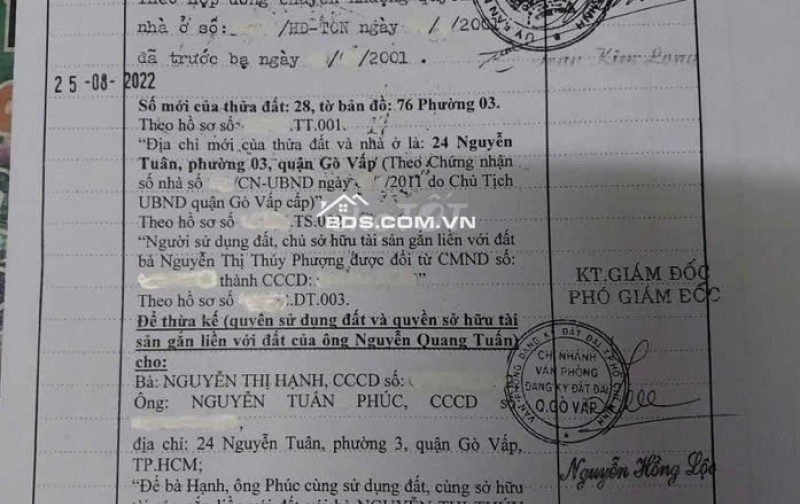 Theo hợp đồng chuyển nhượng
nhà ở số: /HĐ-TCN ngày / /200
đã trước bạ ngày / /2001.
Kim Long
25-08-2022
Số mới của thửa đất: 28, tờ bản đồ: 76 Phường 03.
Theo hồ sơ số .TT.001.
“Địa chỉ mới của thửa đất và nhà ở là: 24 Nguyễn
Tuân, phường 03, quận Gò Vấp (Theo Chứng nhận
số nhà số /CN-UBND ngày / /2011 do Chủ Tịch
UBND quận Gò Vấp cấp)”
Theo hồ sơ số .TS.
BDS.COM.VN
“Người sử dụng đất, chủ sở hữu tài sản gắn liền với đất
bà Nguyễn Thị Thúy Phượng được đổi từ CMND số:
thành CCCD: ”
Theo hồ sơ số .DT.003.
Để thừa kế (quyền sử dụng đất và quyền sở hữu tài
sản gắn liền với đất của ông Nguyễn Quang Tuấn)
cho:
Bà: NGUYỄN THỊ HẠNH, CCCD số:
Ông: NGUYỄN TUẤN PHÚC, CCCD
địa chỉ: 24 Nguyễn Tuân, phường 3, quận Gò Vấp,
TP.HCM;
“Để bà Hạnh, ông Phúc cùng sử dụng đất, cùng sở hữu
KT.GIÁM ĐỐC
PHÓ GIÁM ĐỐC
VĂN PHÒNG ĐĂNG KÝ ĐẤT ĐAI TP.HỒ CHÍ MINH
CHI NHÁNH
VĂN PHÒNG
ĐĂNG KÝ ĐẤT ĐAI
Q.GÒ VẤP
Nguyễn Hồng Lộc